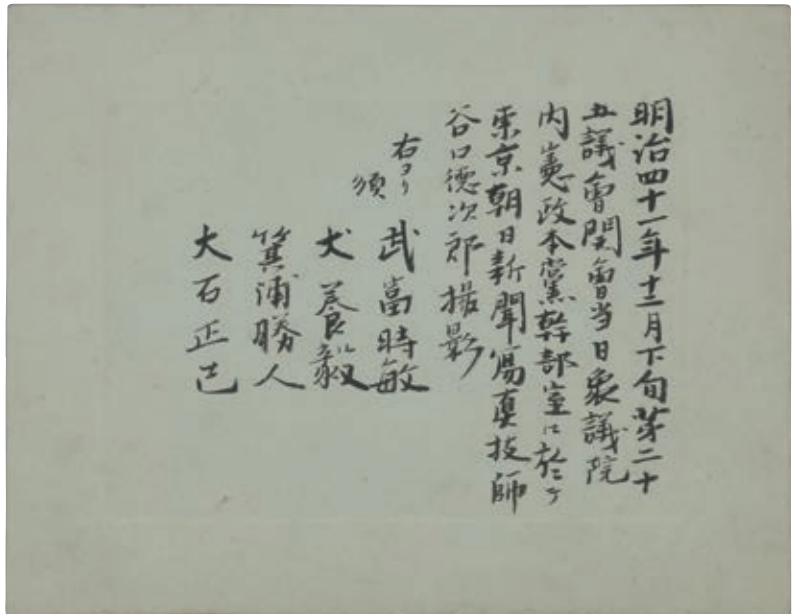 明治四十一年十二月下旬第二十
五議會開會当日衆議院
内憲政本黨幹部室ニ於テ
東京朝日新聞寫真技師
谷口徳次郎撮影
右ヨリ
順
武富時敏
犬養毅
箕浦勝人
大石正己